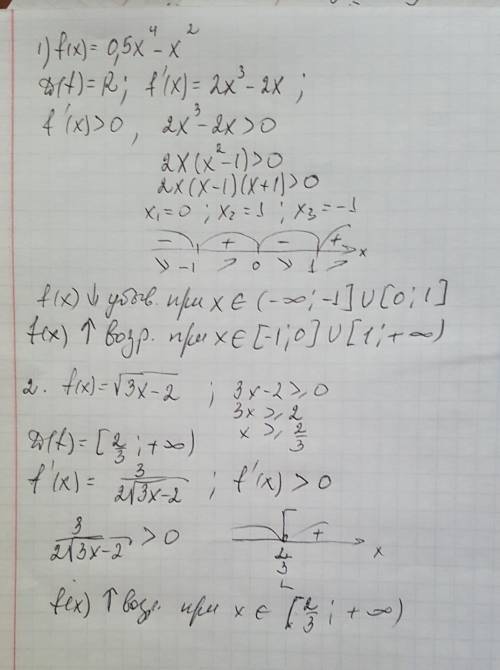 1) f(x) = 0,5x⁴ - x²
D(f) = R; f'(x) = 2x³ - 2x ;
f'(x) > 0 , 2x³ - 2x > 0
2x(x² - 1) > 0
2x(x-1)(x+1) > 0
x₁ = 0 ; x₂ = 1 ; x₃ = -1
- + - +
↘ -1 ↗ 0 ↘ 1 ↗ x
f(x) ↓ убыв. при x ∈ (-∞; -1] ∪ [0; 1]
f(x) ↑ возр. при x ∈ [-1; 0] ∪ [1; +∞)
2. f(x) = √3x-2 ; 3x - 2 ≥ 0
3x ≥ 2
x ≥ 2/3
D(f) = [2/3 ; +∞)
f'(x) = 3/(2√3x-2) ; f'(x) > 0
3/(2√3x-2) > 0
+
2/3 x
f(x) ↑ возр. при x ∈ [2/3 ; +∞)